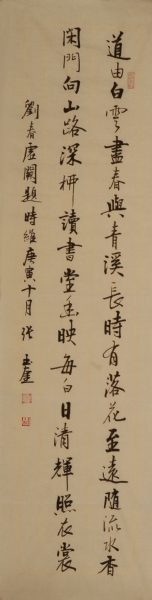 道由白雲盡春與青溪長時有落花至遠隨流水香
閑門向山路深柳讀書堂幽映每白日清輝照衣裳
劉春虛闕題時維庚寅十月張